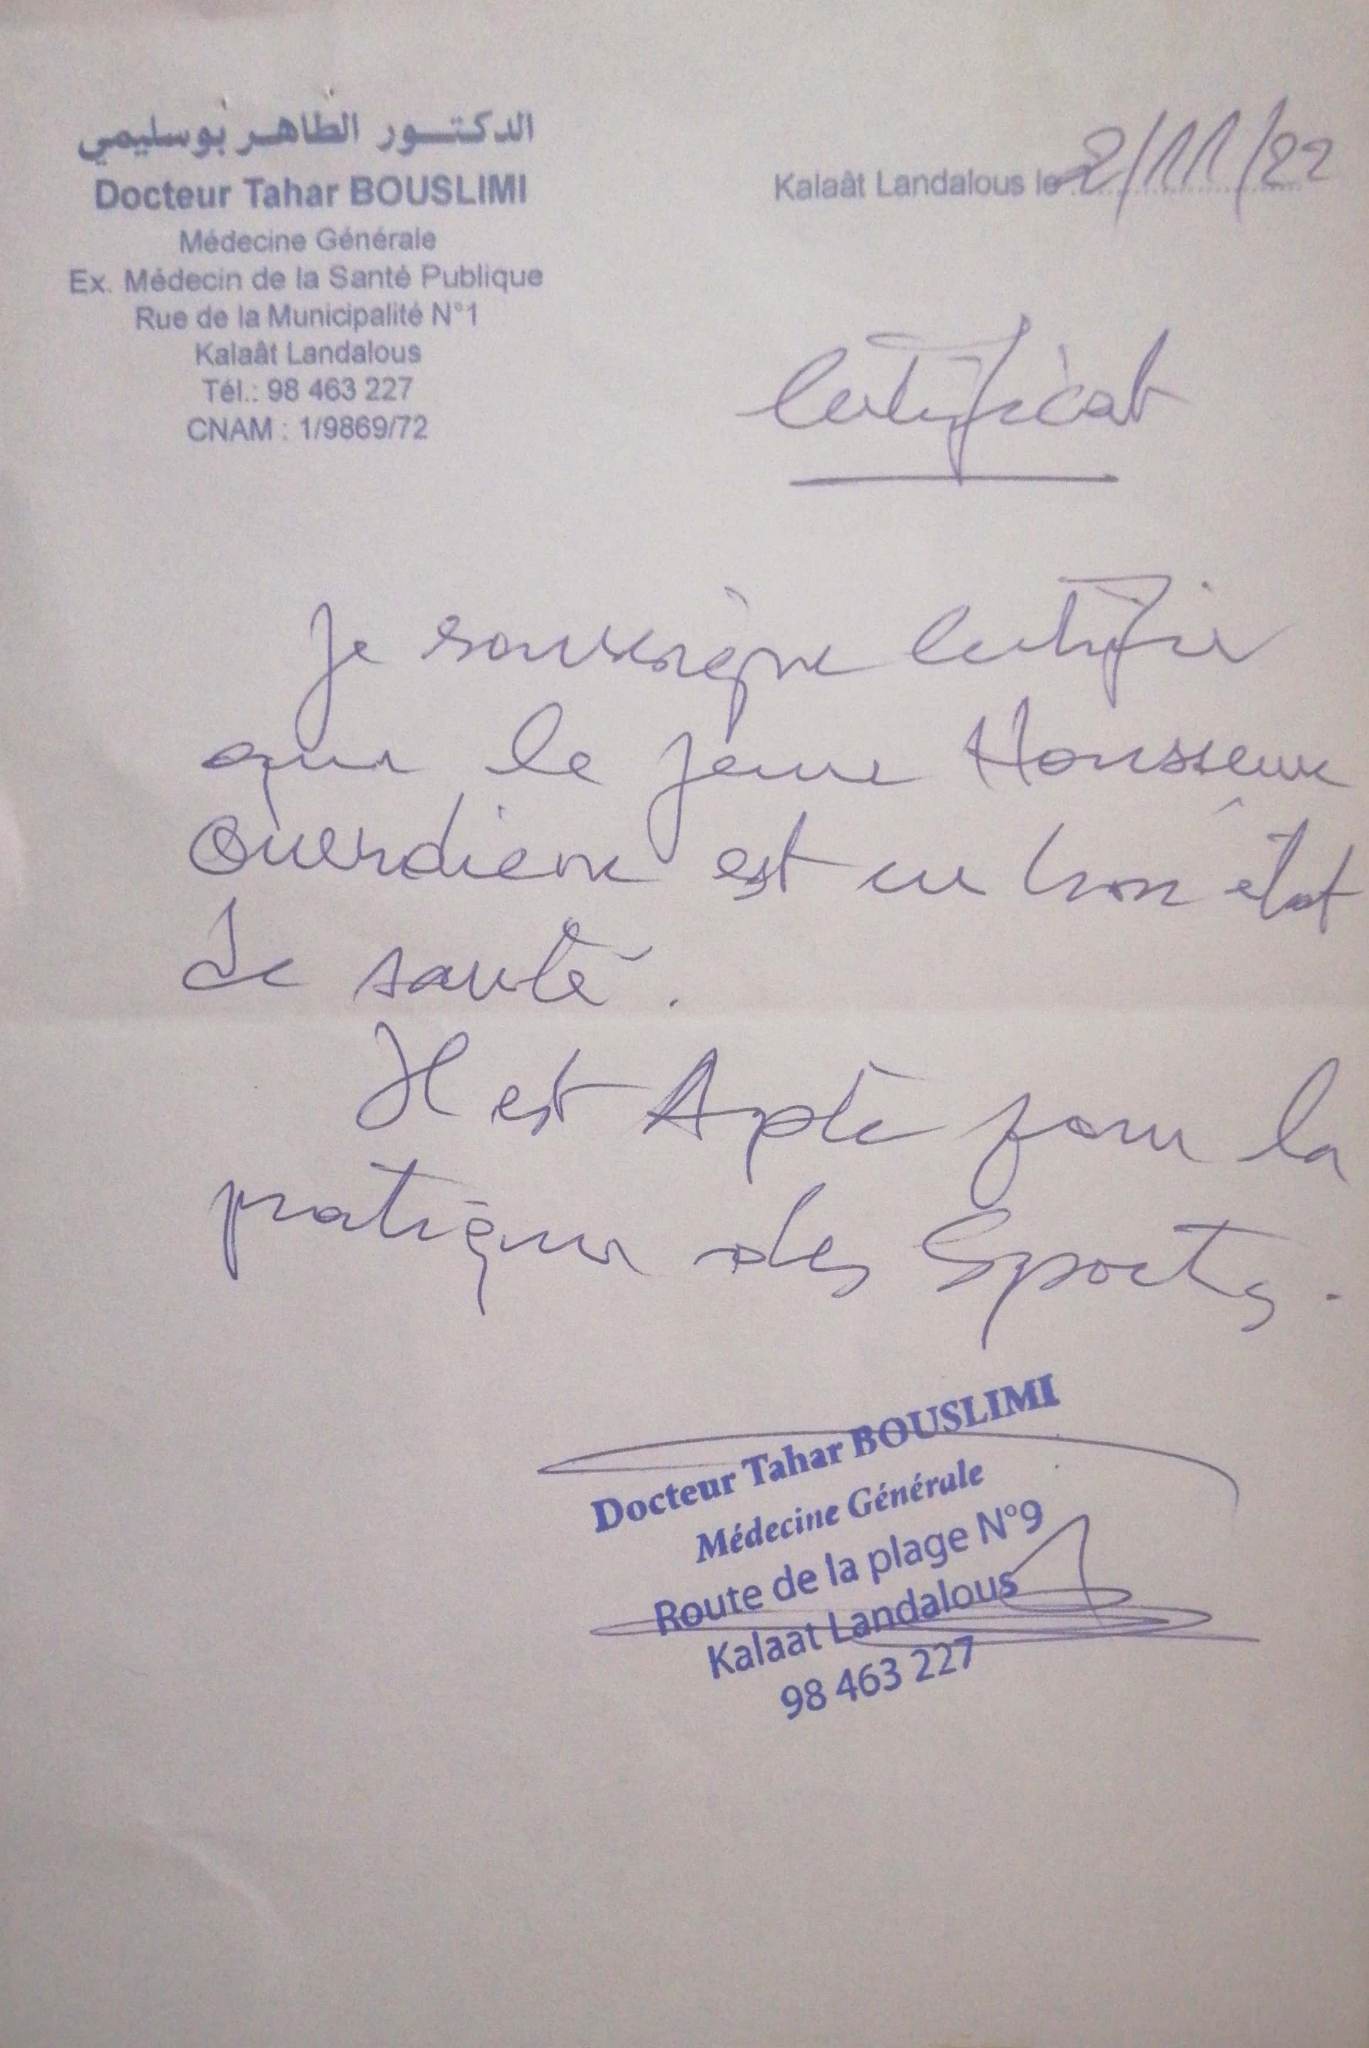 الدكتور الطاهر بوسليمي
Docteur Tahar BOUSLIMI
Médecine Générale
Ex. Médecin de la Santé Publique
Rue de la Municipalité N°1
Kalaât Landalous
Tél.: 98 463 227
CNAM : 1/9869/72
Kalaât Landalous le 2/11/22
Certificat
Je soussigne certifie
que le jeune Housseine
est en bon état
de santé.
Il est Apte pour la
pratique des Sports.
Docteur Tahar BOUSLIMI
Médecine Générale
Route de la plage N°9
Kalaat Landalous
98 463 227